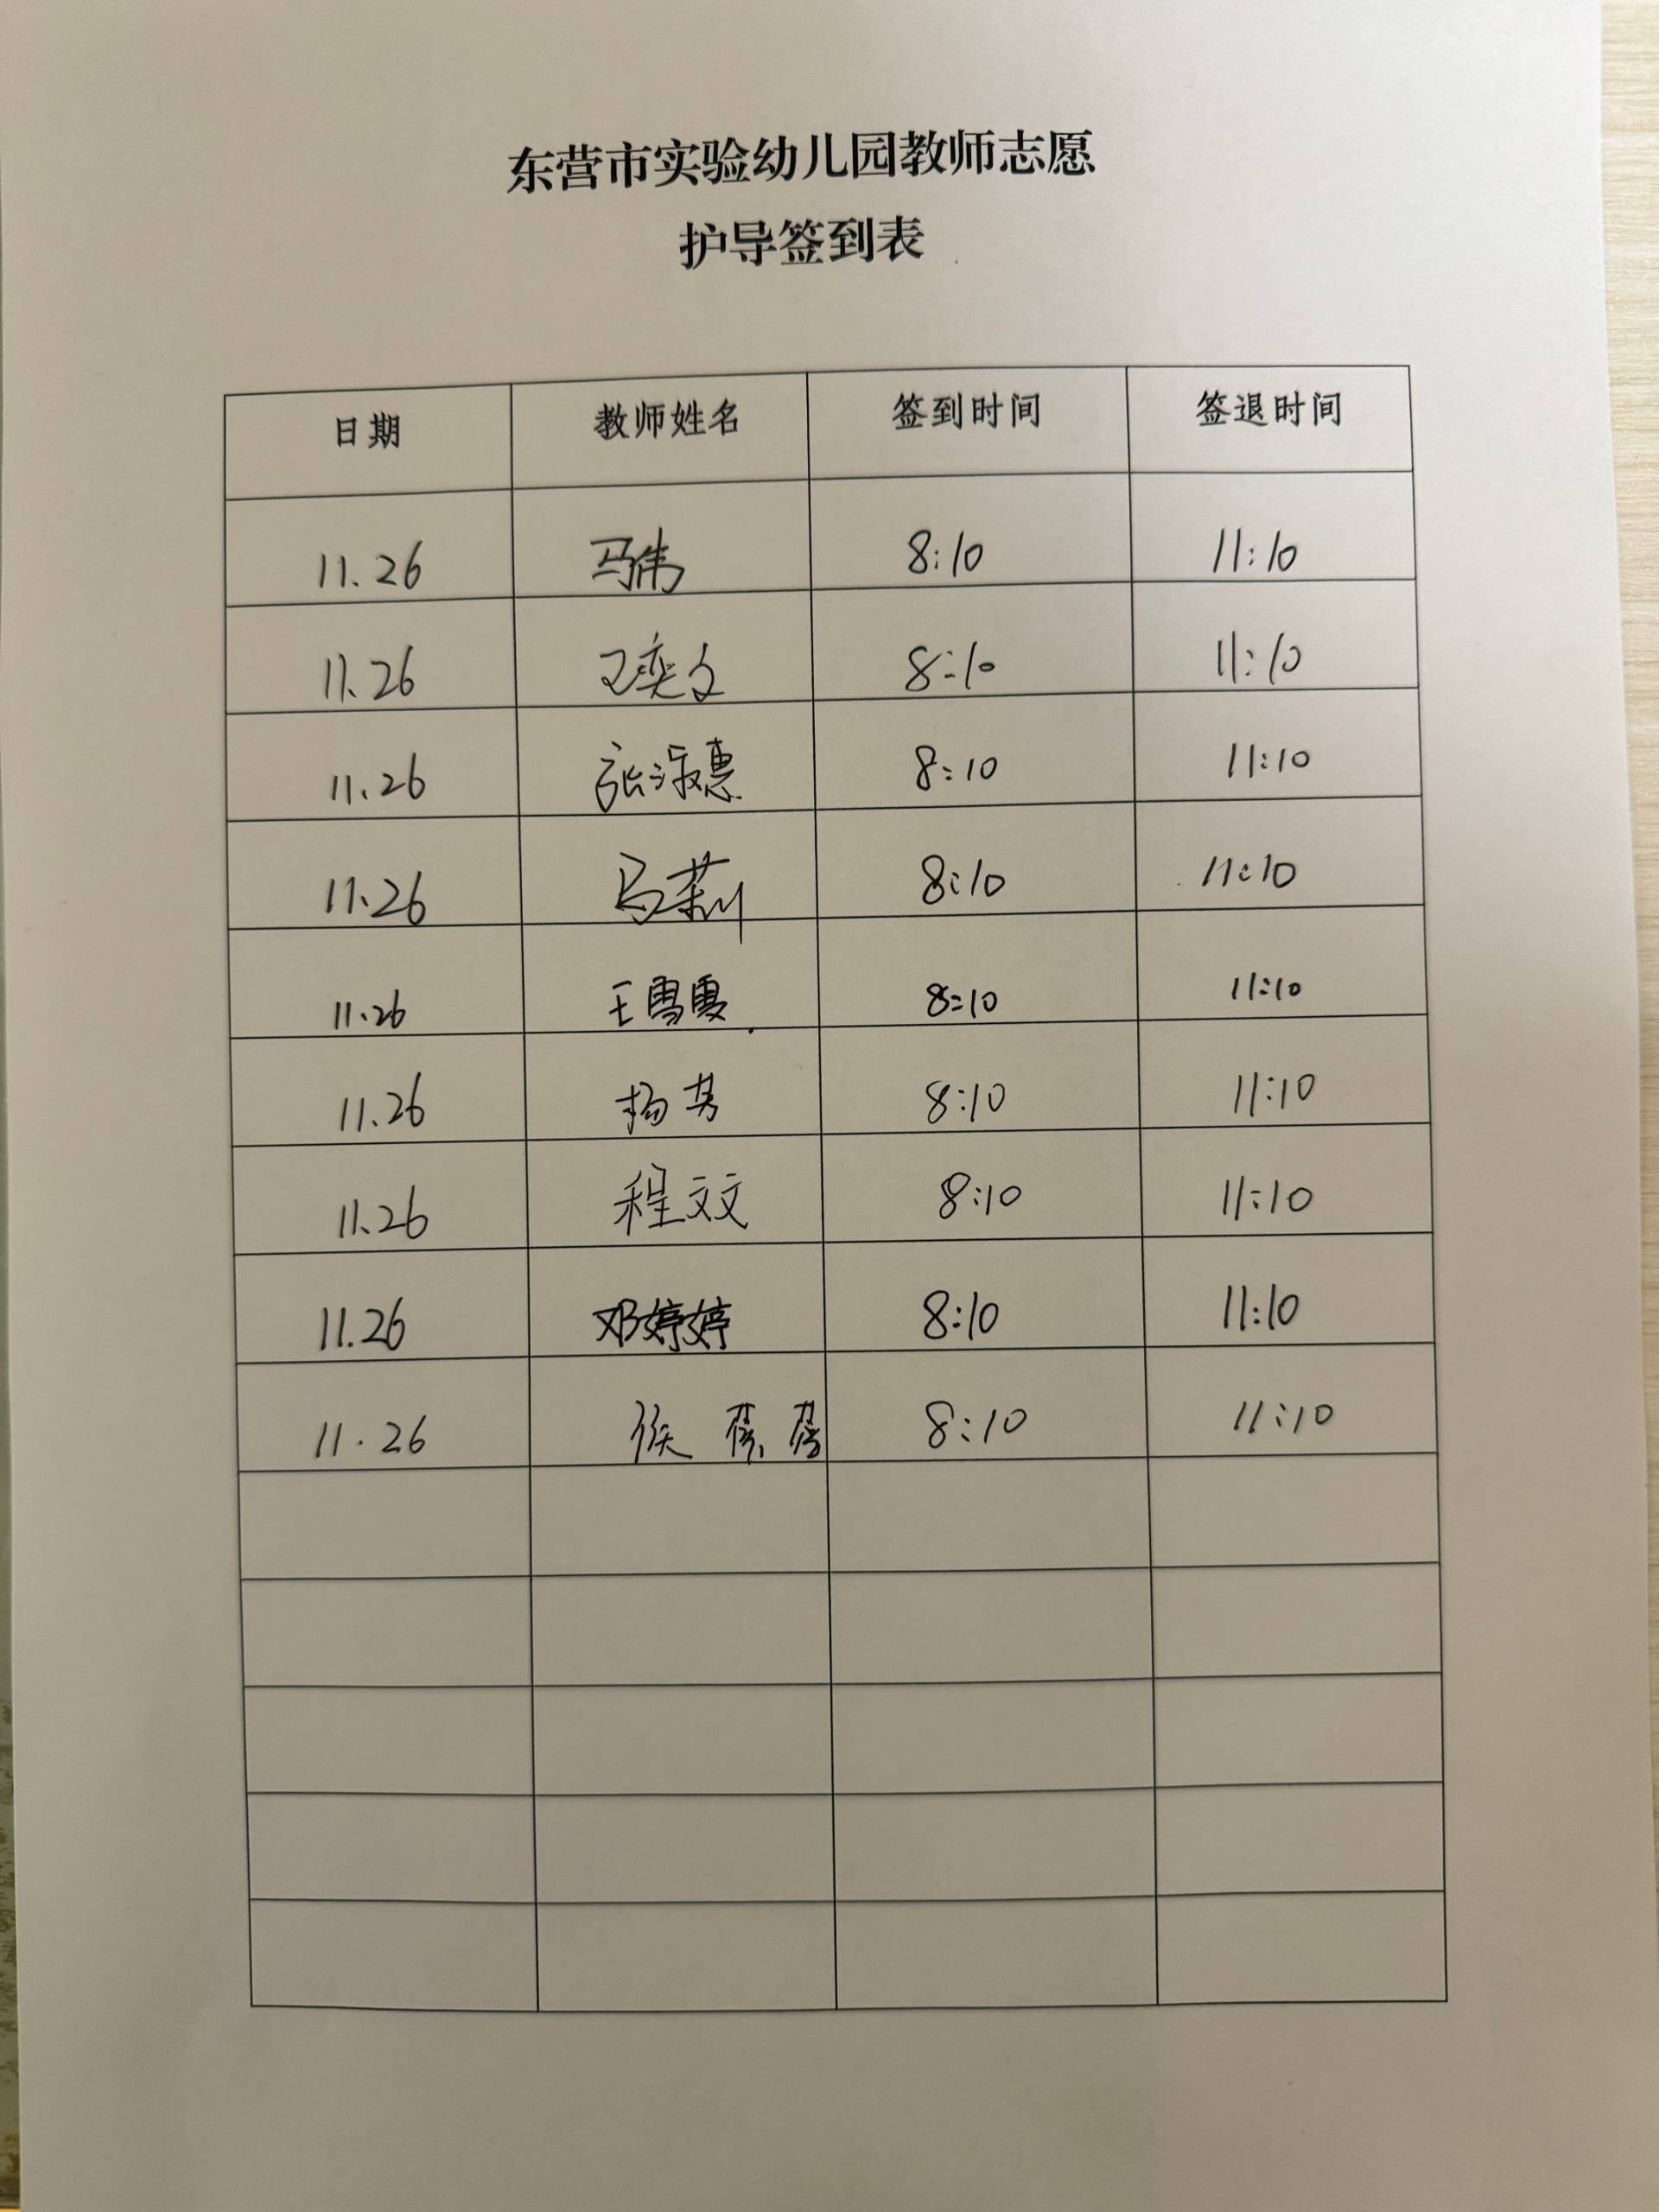 东营市实验幼儿园教师志愿
护导签到表
日期 教师姓名 签到时间 签退时间
11.26 马伟 8:10 11:10
11.26 奕文 8:10 11:10
11.26 张淑惠 8:10 11:10
11.26 马莉 8:10 11:10
11.26 王雪霞 8:10 11:10
11.26 杨芳 8:10 11:10
11.26 程文文 8:10 11:10
11.26 邓婷婷 8:10 11:10
11.26 侯蓓蓓 8:10 11:10